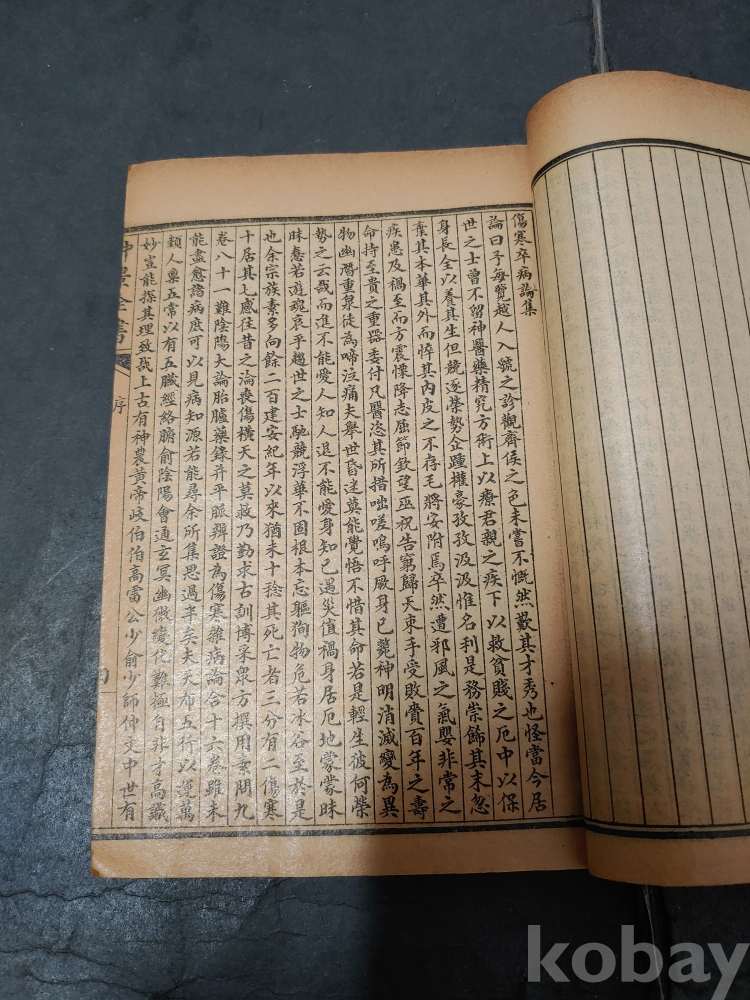 傷寒卒病論集
論曰予每覽越人入虢之診觀齊侯之色未嘗不慨然歎其才秀也怪當今居
世之士曾不留神醫藥精究方術上以療君親之疾下以救貧賤之厄中以保
身長全以養其生但競逐榮勢企踵權豪孜孜汲汲惟名利是務崇飾其末忽
棄其本華其外而悴其內皮之不存毛將安附焉卒然遭邪風之氣嬰非常之
疾患及禍至而方震慄降志屈節欽望巫祝告窮歸天束手受敗賷百年之壽
命持至貴之重器委付凡醫恣其所措咄嗟嗚呼厥身已斃神明消滅變為異
物幽潛重泉徒為啼泣痛夫舉世昏迷莫能覺悟不惜其命若是輕生彼何榮
勢之云哉而進不能愛人知人退不能愛身知己遇災值禍身居厄地蒙蒙昧
昧惷若遊魂哀乎趨世之士馳競浮華不固根本忘軀狥物危若冰谷至於是
也余宗族素多向餘二百建安紀年以來猶未十稔其死亡者三分有二傷寒
十居其七感往昔之淪喪傷橫夭之莫救乃勤求古訓博采衆方撰用素問九
卷八十一難陰陽大論胎臚藥錄并平脈辨證為傷寒雜病論合十六卷雖未
能盡愈諸病庶可以見病知源若能尋余所集思過半矣夫天布五行以運萬
類人稟五常以有五臟經絡腑俞陰陽會通玄冥幽微變化難極自非才高識
妙豈能探其理致哉上古有神農黃帝岐伯伯高雷公少俞少師仲文中世有
仲景全書
序
kobay